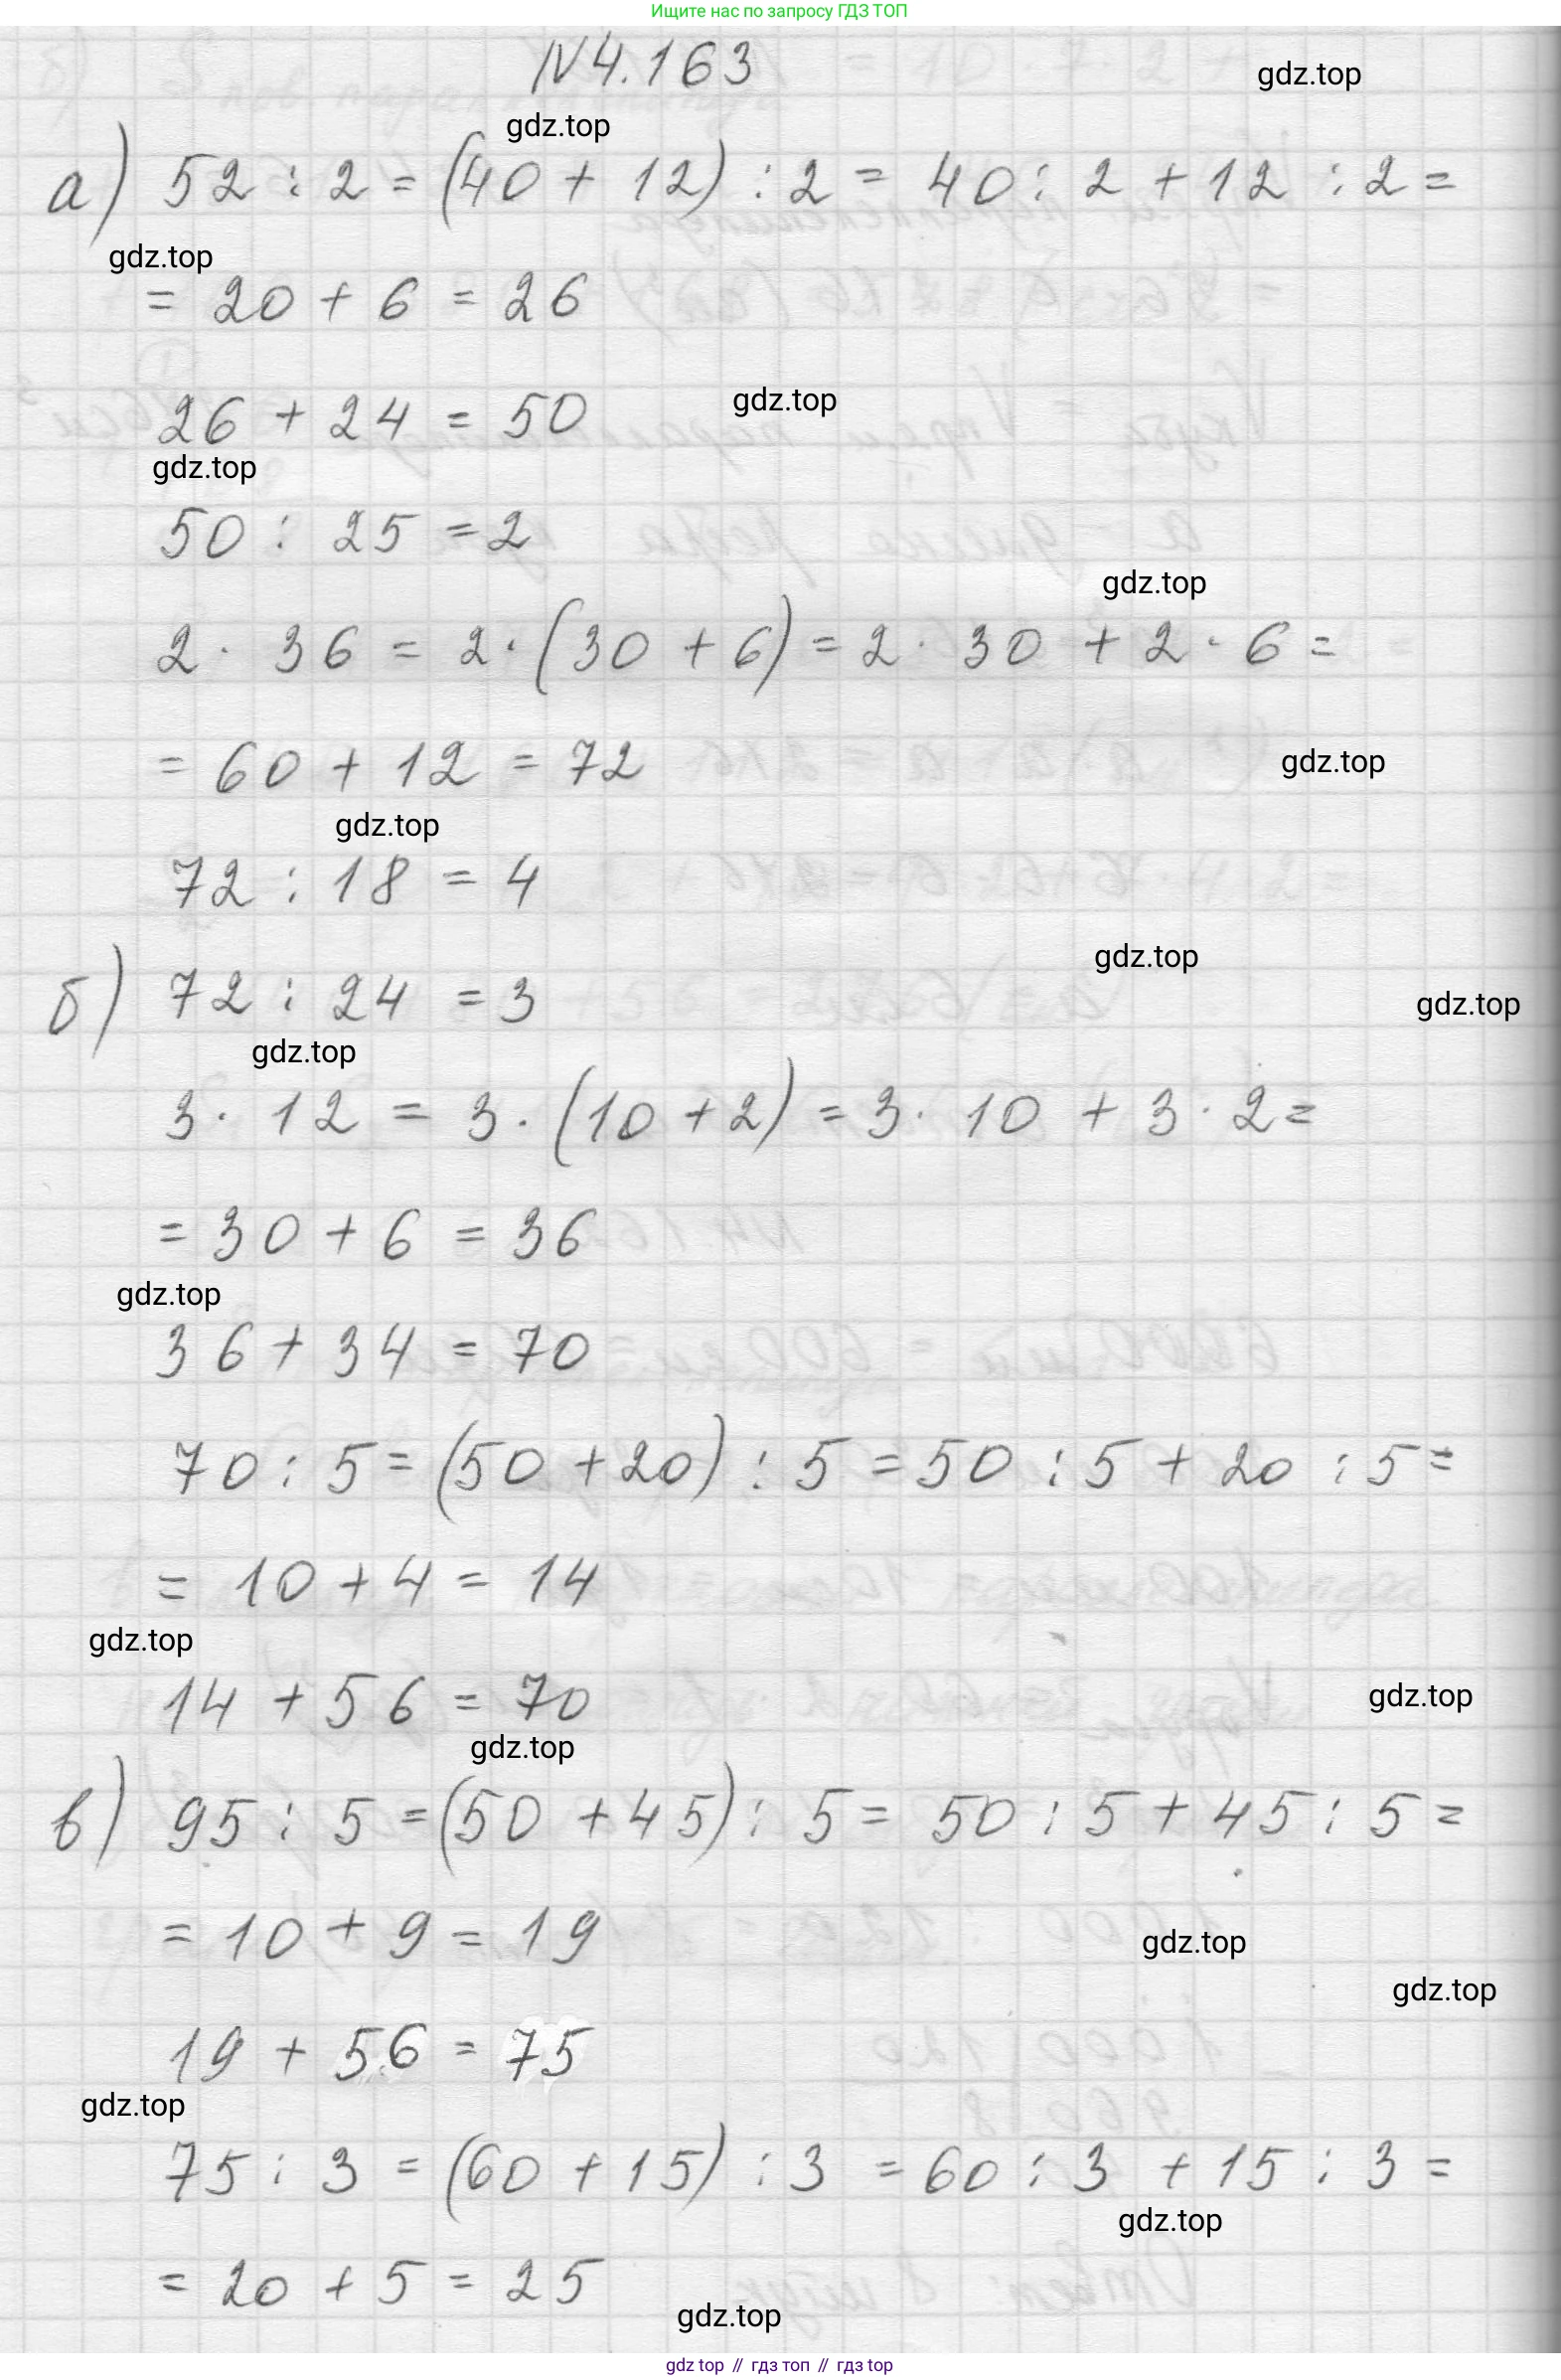 Ищите нас по запросу ГДЗ ТОП
N4.163
gdz.top
gdz.top
а) 52 : 2 = (40 + 12) : 2 = 40 : 2 + 12 : 2 =
gdz.top
= 20 + 6 = 26
26 + 24 = 50
gdz.top
gdz.top
50 : 25 = 2
gdz.top
2 · 36 = 2 · (30 + 6) = 2 · 30 + 2 · 6 =
= 60 + 12 = 72
gdz.top
gdz.top
72 : 18 = 4
gdz.top
б) 72 : 24 = 3
gdz.top
gdz.top
3 · 12 = 3 · (10 + 2) = 3 · 10 + 3 · 2 =
= 30 + 6 = 36
gdz.top
36 + 34 = 70
70 : 5 = (50 + 20) : 5 = 50 : 5 + 20 : 5 =
= 10 + 4 = 14
gdz.top
14 + 56 = 70
gdz.top
gdz.top
в) 95 : 5 = (50 + 45) : 5 = 50 : 5 + 45 : 5 =
= 10 + 9 = 19
gdz.top
gdz.top
19 + 56 = 75
gdz.top
75 : 3 = (60 + 15) : 3 = 60 : 3 + 15 : 3 =
gdz.top
= 20 + 5 = 25
gdz.top
gdz top // гдз топ // гдз top